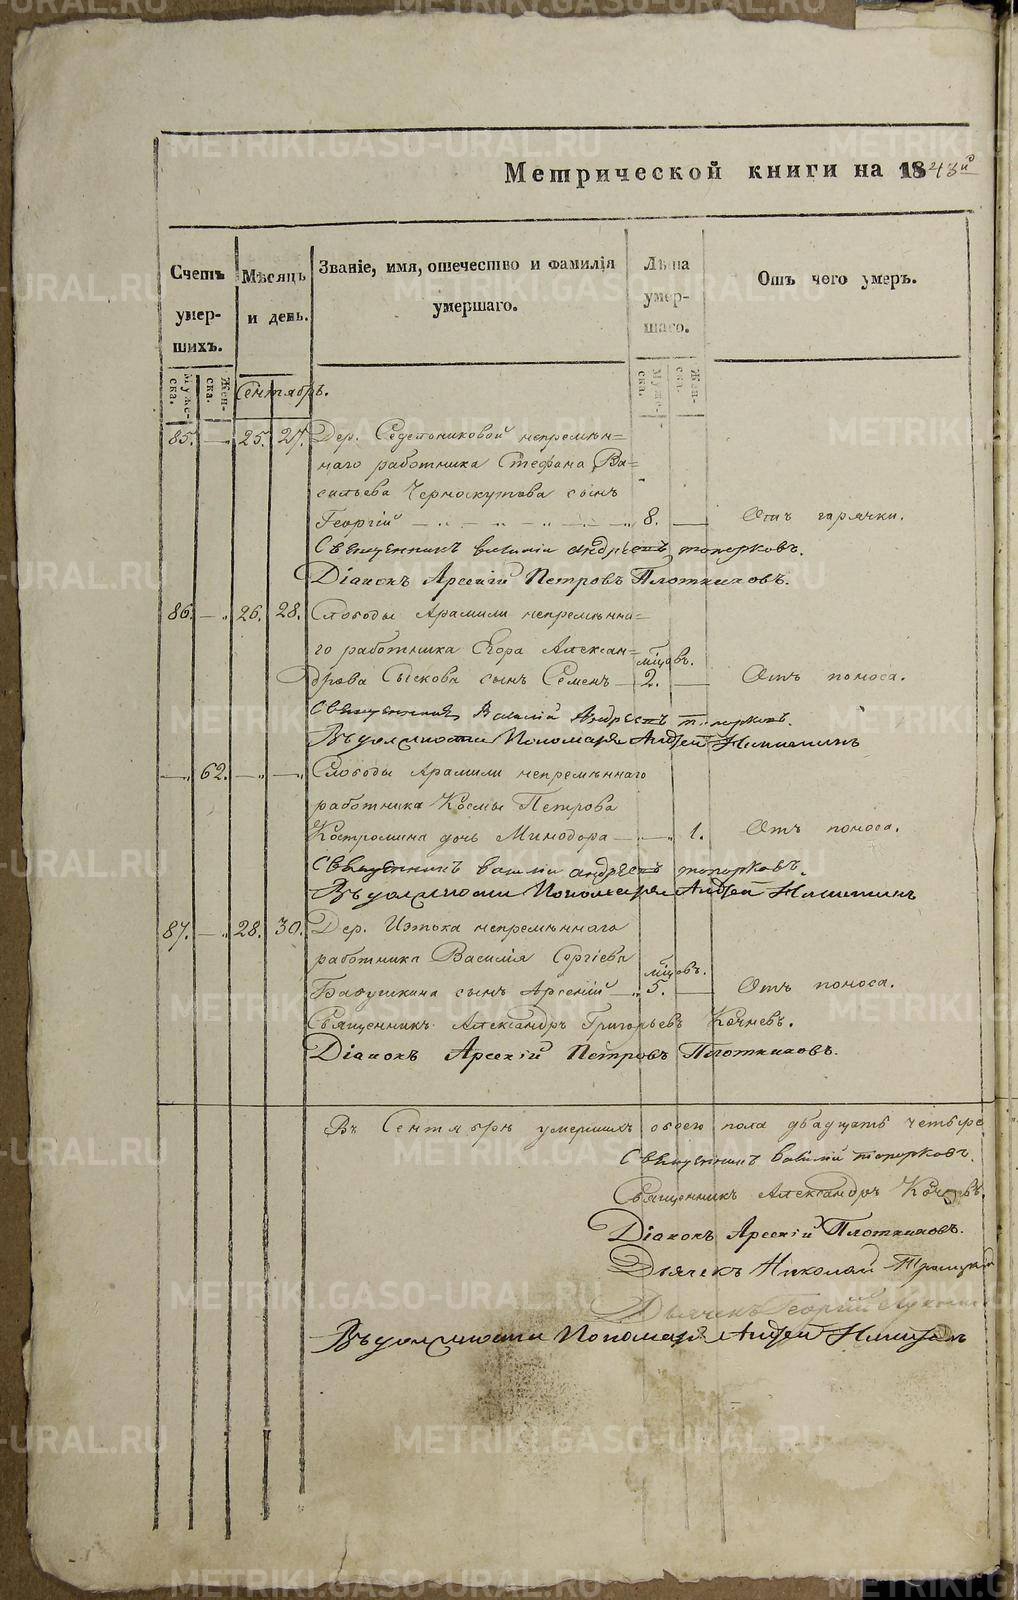 Метрической книги на 1843й
Счетъ умер-шихъ.
Мѣсяцъ и день.
Званіе, имя, отечество и фамилія умершаго.
Лѣта умер-шаго.
Отъ чего умеръ.
Муже-ска. Жен-ска. Муже-ска. Жен-ска.
Сентябрь.
85. — 25. 27. Дер. Седельниковой непремѣн=
наго работника Стефана Ва=
сильева Черноскутова сынъ
Георгій 8. — Отъ горячки.
Священникъ Василій Андреевъ Топорковъ.
Діаконъ Арсеній Петровъ Плотниковъ.
86. — 26. 28. Слободы Арамили непремѣнна=
го работника Егора Алексан=
мѣцовъ.
дрова Сыскова сынъ Семенъ — 2. — Отъ поноса.
Священникъ Василій Андреевъ Топорковъ.
Въ должности Пономаря Андрей
— 62. — — Слободы Арамили непремѣннаго
работника Космы Петрова
Костромина дочь Минодора — — 1. Отъ поноса.
Священникъ Василій Андреевъ Топорковъ.
Въ должности Пономаря Андрей
87. — 28. 30. Дер. Истока непремѣннаго
работника Василія Сергіева
мѣцовъ.
Бабушкина сынъ Арсеній — 5. — Отъ поноса.
Священникъ Александръ Григорьевъ Кочневъ.
Діаконъ Арсеній Петровъ Плотниковъ.
Въ Сентябрѣ умершихъ обоего пола двадцать четыре
Священникъ Василій Топорковъ.
Священникъ Александръ Кочневъ.
Діаконъ Арсеній Плотниковъ.
Дьячекъ Николай
Дьячекъ Георгій
Въ должности Пономаря Андрей
METRIKI.GASO-URAL.RU